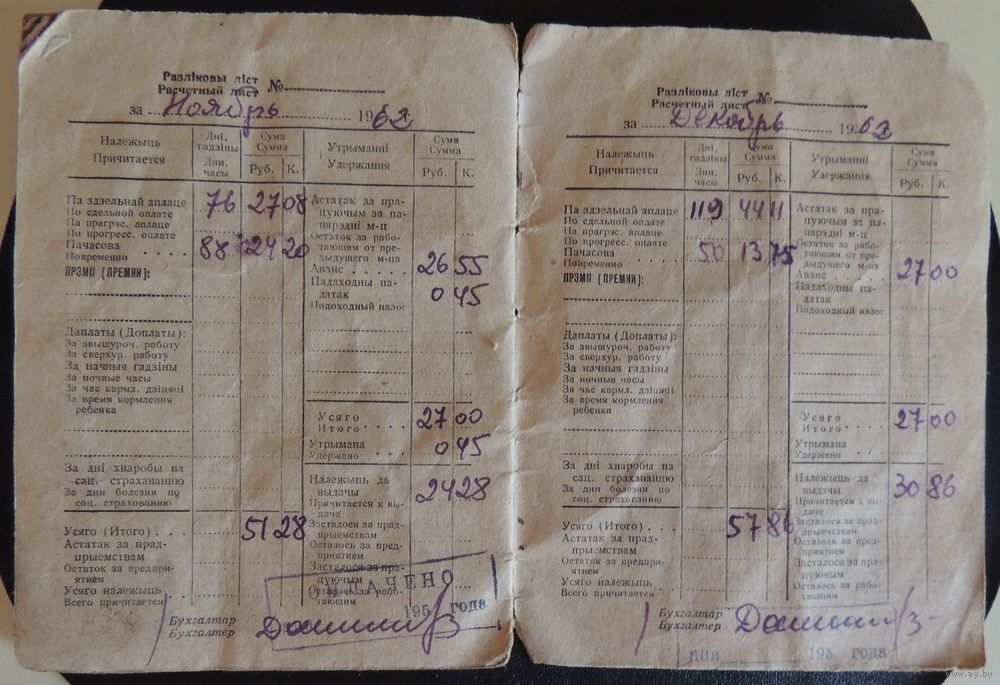 Разліковы ліст
Расчетный лист №
за Ноябрь 1962
Належыць
Причитается
Дні, гадзіны
Дни, часы
Сума
Сумма
Руб. К.
Утрыманні
Удержания
Сума
Сумма
Руб. К.
Па здзельнай аплаце 76 27 08
По сдельной оплате
Па прагрэс. аплаце
По прогресс. оплате
Пачасова 88 24 20
Повременно
ПРЭМІІ (ПРЕМИИ):
Даплаты (Доплаты):
За звышуроч. работу
За сверхур. работу
За начныя гадзіны
За ночные часы
За час кармл. дзіцяці
За время кормления
ребенка
За дні хваробы па
сац. страхаванню
За дни болезни по
соц. страхованию
Усяго (Итого) 51 28
Астатак за прад-
прыемствам
Остаток за предпри-
ятием
Усяго належыць
Всего причитается
Астатак за пра-
цуючым за па-
пярэдні м-ц
Остаток за рабо-
тающим от пре-
дыдущего м-ца
Аванс 26 55
Падаходны па-
датак 0 45
Подоходный налог
Усяго
Итого 27 00
Утрымана
Удержано 0 45
Належыць да
выдачы 24 28
Причитается к вы-
даче
Засталося за прад-
прыемствам
Осталось за пред-
приятием
Засталося за пра-
цуючым
Осталось за рабо-
тающим
195 года
Бухгалтар
Бухгалтер
Разліковы ліст
Расчетный лист №
за Декабрь 1962
Належыць
Причитается
Дні, гадзіны
Дни, часы
Сума
Сумма
Руб. К.
Утрыманні
Удержания
Сума
Сумма
Руб. К.
Па здзельнай аплаце 119 44 11
По сдельной оплате
Па прагрэс. аплаце
По прогресс. оплате
Пачасова 50 13 75
Повременно
ПРЭМІІ (ПРЕМИИ):
Даплаты (Доплаты):
За звышуроч. работу
За сверхур. работу
За начныя гадзіны
За ночные часы
За час кармл. дзіцяці
За время кормления
ребенка
За дні хваробы па
сац. страхаванню
За дни болезни по
соц. страхованию
Усяго (Итого) 57 86
Астатак за прад-
прыемствам
Остаток за предпри-
ятием
Усяго належыць
Всего причитается
Астатак за пра-
цуючым за па-
пярэдні м-ц
Остаток за рабо-
тающим от пре-
дыдущего м-ца
Аванс 27 00
Падаходны па-
датак
Подоходный налог
Усяго
Итого 27 00
Утрымана
Удержано
Належыць да
выдачы 30 86
Причитается к вы-
даче
Засталося за прад-
прыемствам
Осталось за пред-
приятием
Засталося за пра-
цуючым
Осталось за рабо-
тающим
Бухгалтар
Бухгалтер
дня 195 года
www.ay.by